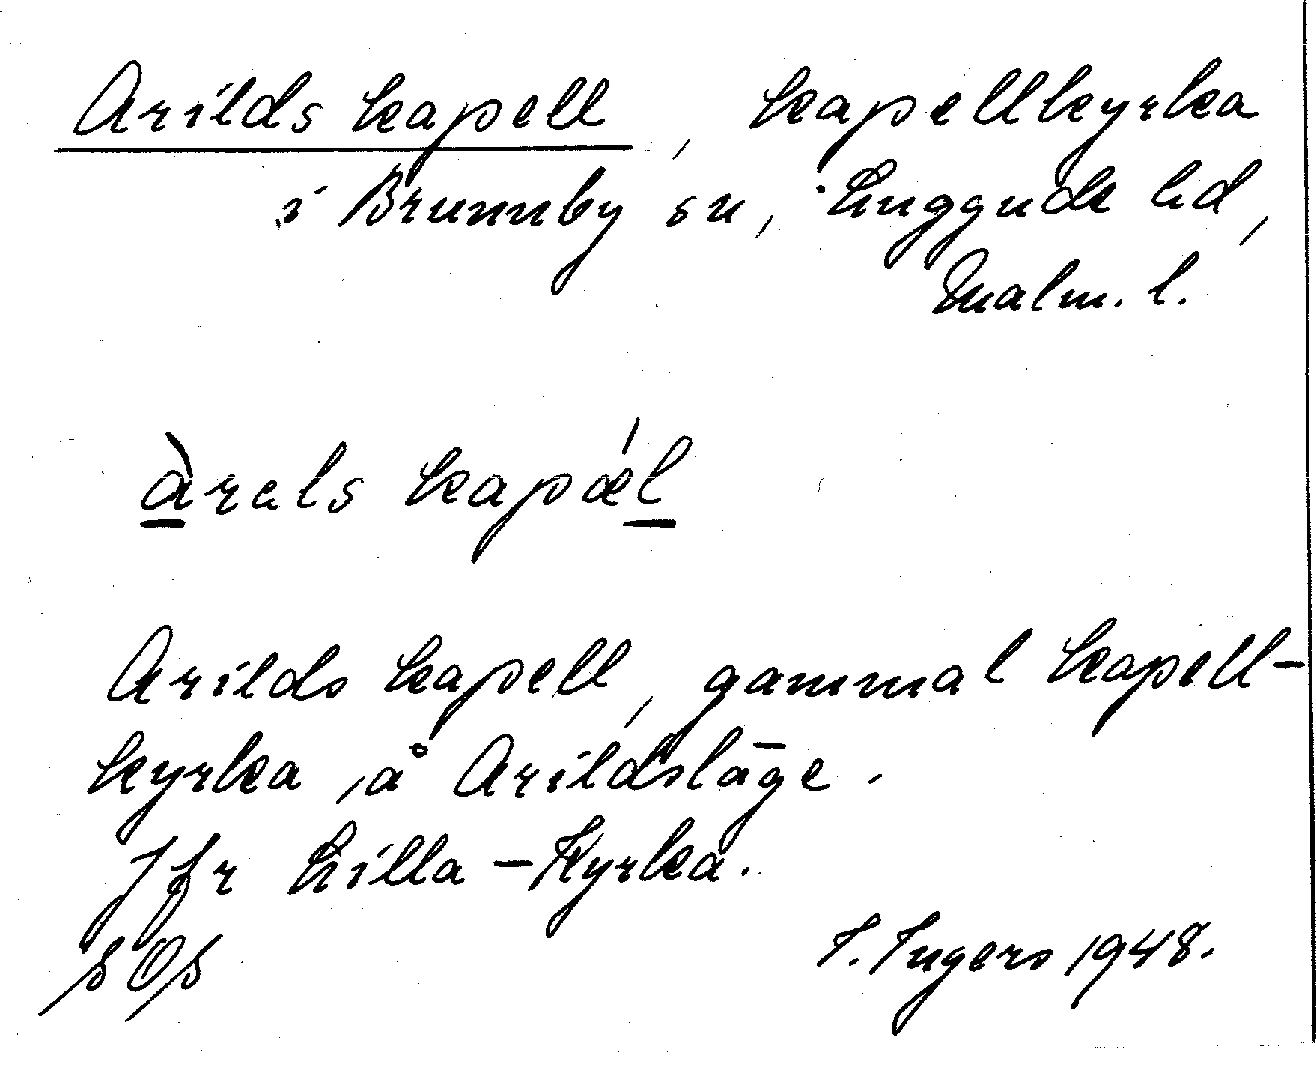 Arilds kapell, kapellkyrka
i Brunnby sn, Luggude hd,
Malm. l.
àrals kapǽl
Arilds kapell, gammal kapell-
kyrka å Arildsläge.
Jfr Lilla-Kyrka.
I. Ingers 1948.